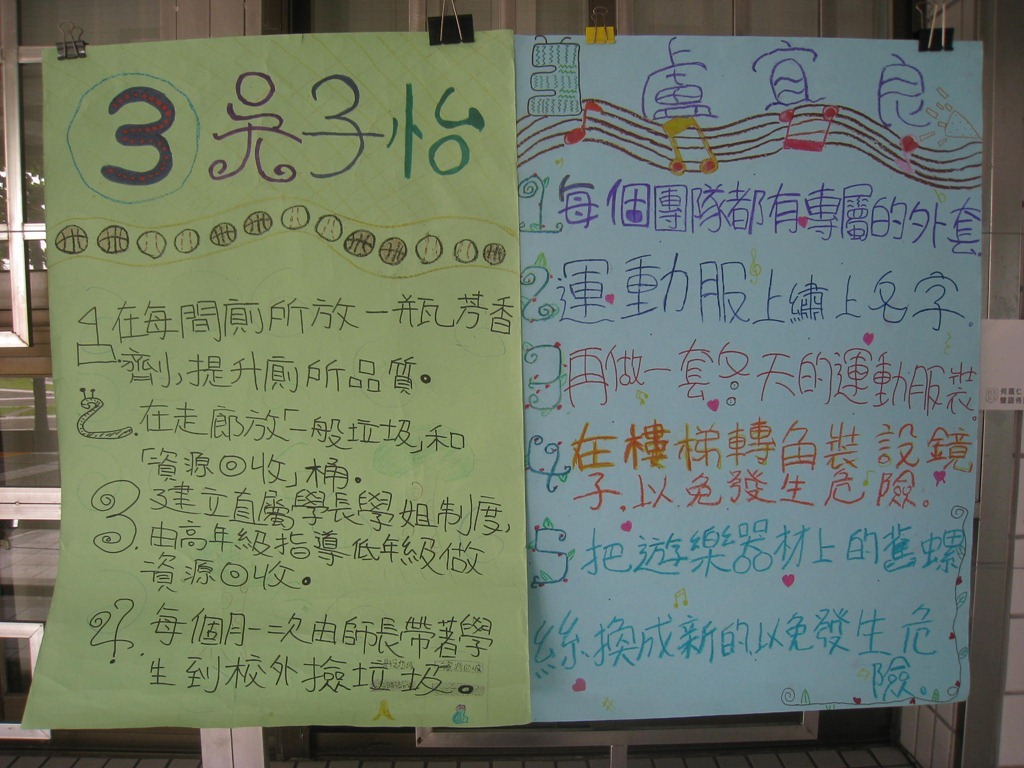 ③ 吳子怡
1.在每間廁所放一瓶芳香
劑,提升廁所品質。
2.在走廊放「一般垃圾」和
「資源回收」桶。
3.建立直屬學長學姐制度,
由高年級指導低年級做
資源回收。
4.每個月一次由師長帶著學
生到校外撿垃圾。
盧宜良
1每個團隊都有專屬的外套
2運動服上繡上名字.
3再做一套冬天的運動服裝.
4在樓梯轉角裝設鏡
子.以免發生危險。
5把遊樂器材上的舊螺
絲換成新的以免發生危
險.